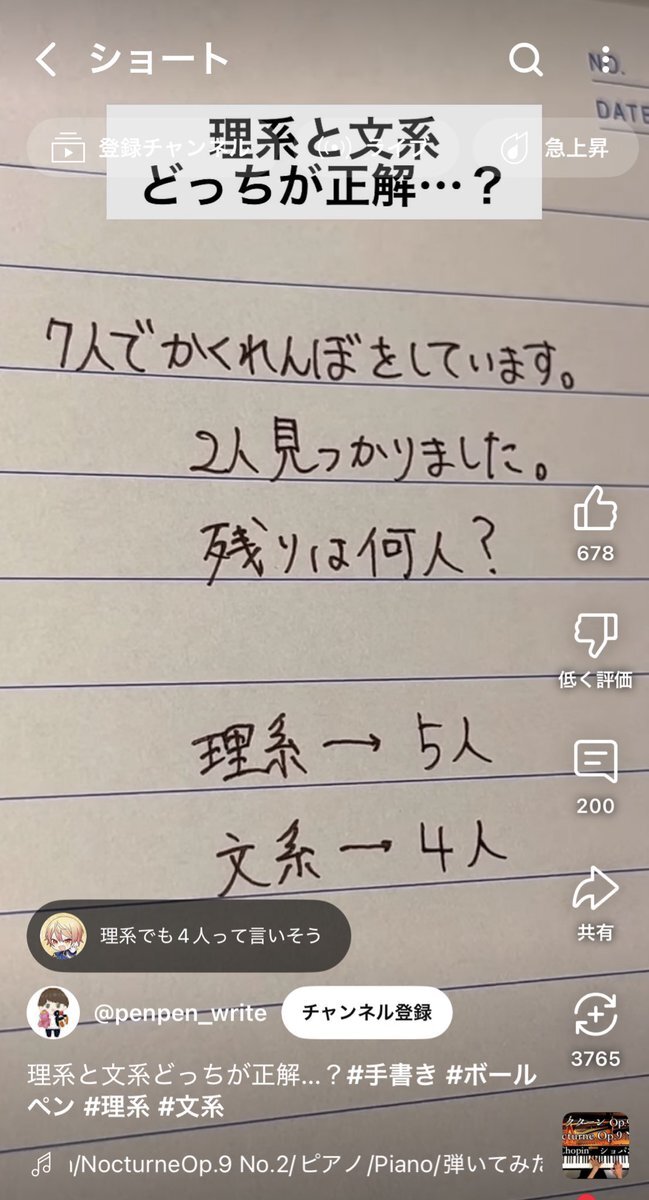 ショート
NO.
DATE
登録チャンネル
ライブ
急上昇
理系と文系
どっちが正解…？
7人でかくれんぼをしています。
2人見つかりました。
残りは何人？
678
低く評価
理系→5人
200
文系→4人
共有
理系でも4人って言いそう
@penpen_write
チャンネル登録
3765
理系と文系どっちが正解...？#手書き #ボール
ペン #理系 #文系
/NocturneOp.9 No.2/ピアノ/Piano/弾いてみた